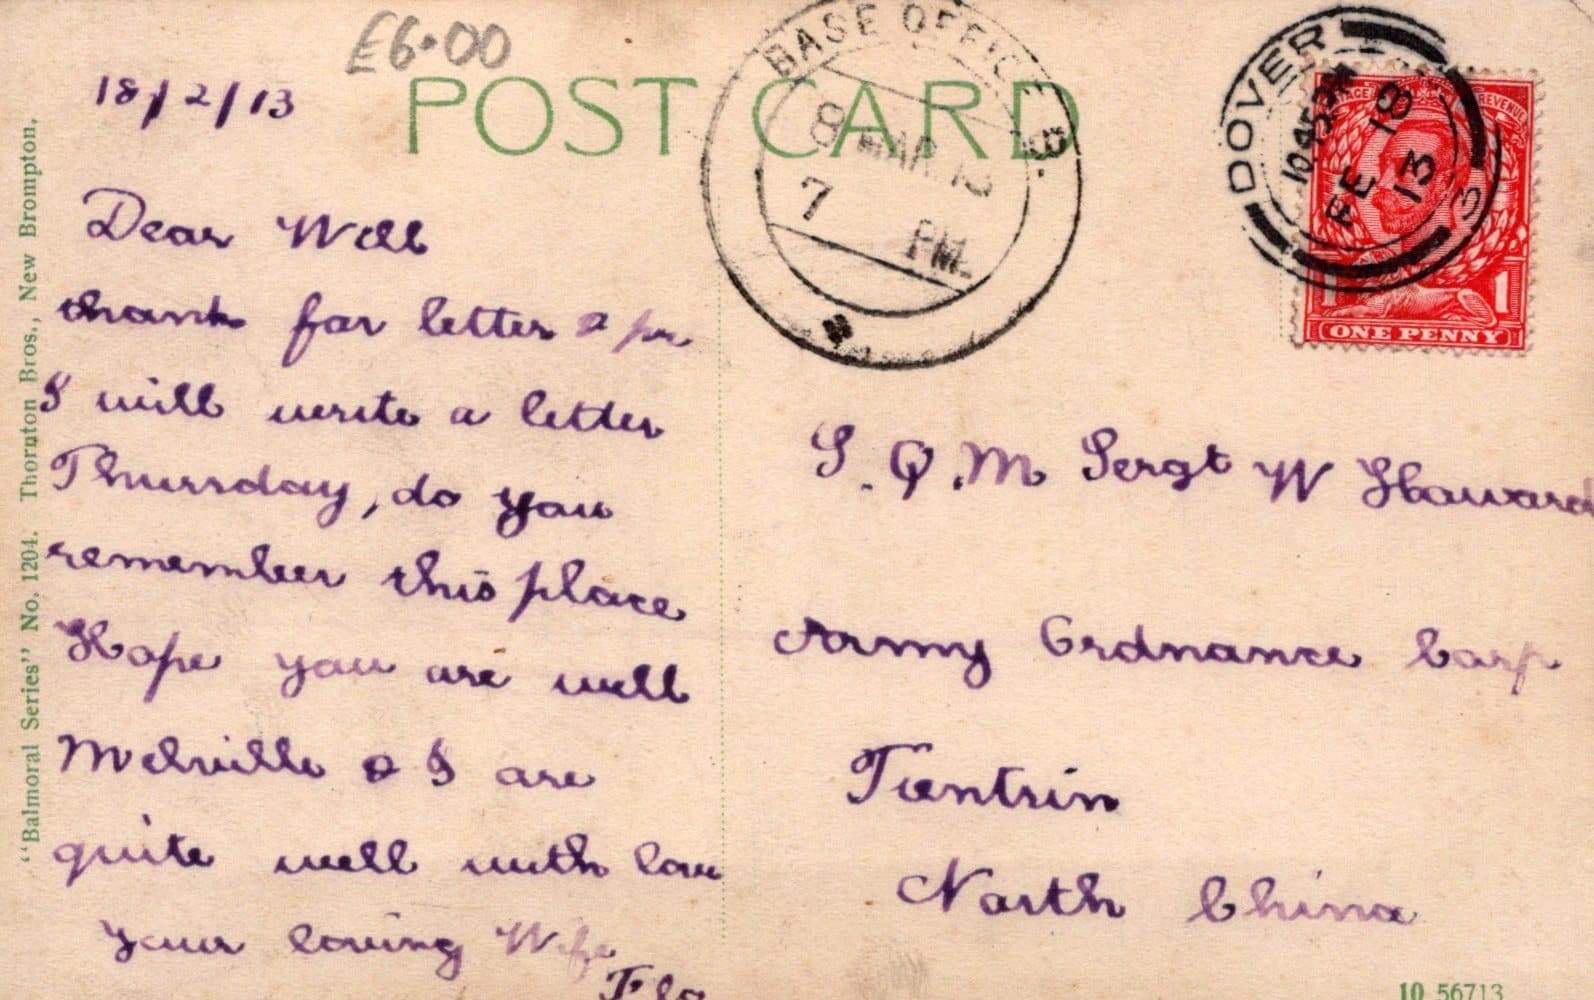 £6.00
POST CARD
18/2/13
Dear Will
thank for letter & pc
I will write a letter
Thursday, do you
remember this place
Hope you are well
Melville & I are
quite well with love
Your loving Wife
Flo
S.Q.M Sergt W Howard
Army Ordnance Corp
Tientsin
North China
BASE OFFICE
8 MAR. 13
7 PM.
DOVER
10 45 PM
FE 18
13
3
POSTAGE REVENUE
1 1
ONE PENNY
"Balmoral Series" No. 1204. Thornton Bros., New Brompton.
10 56713